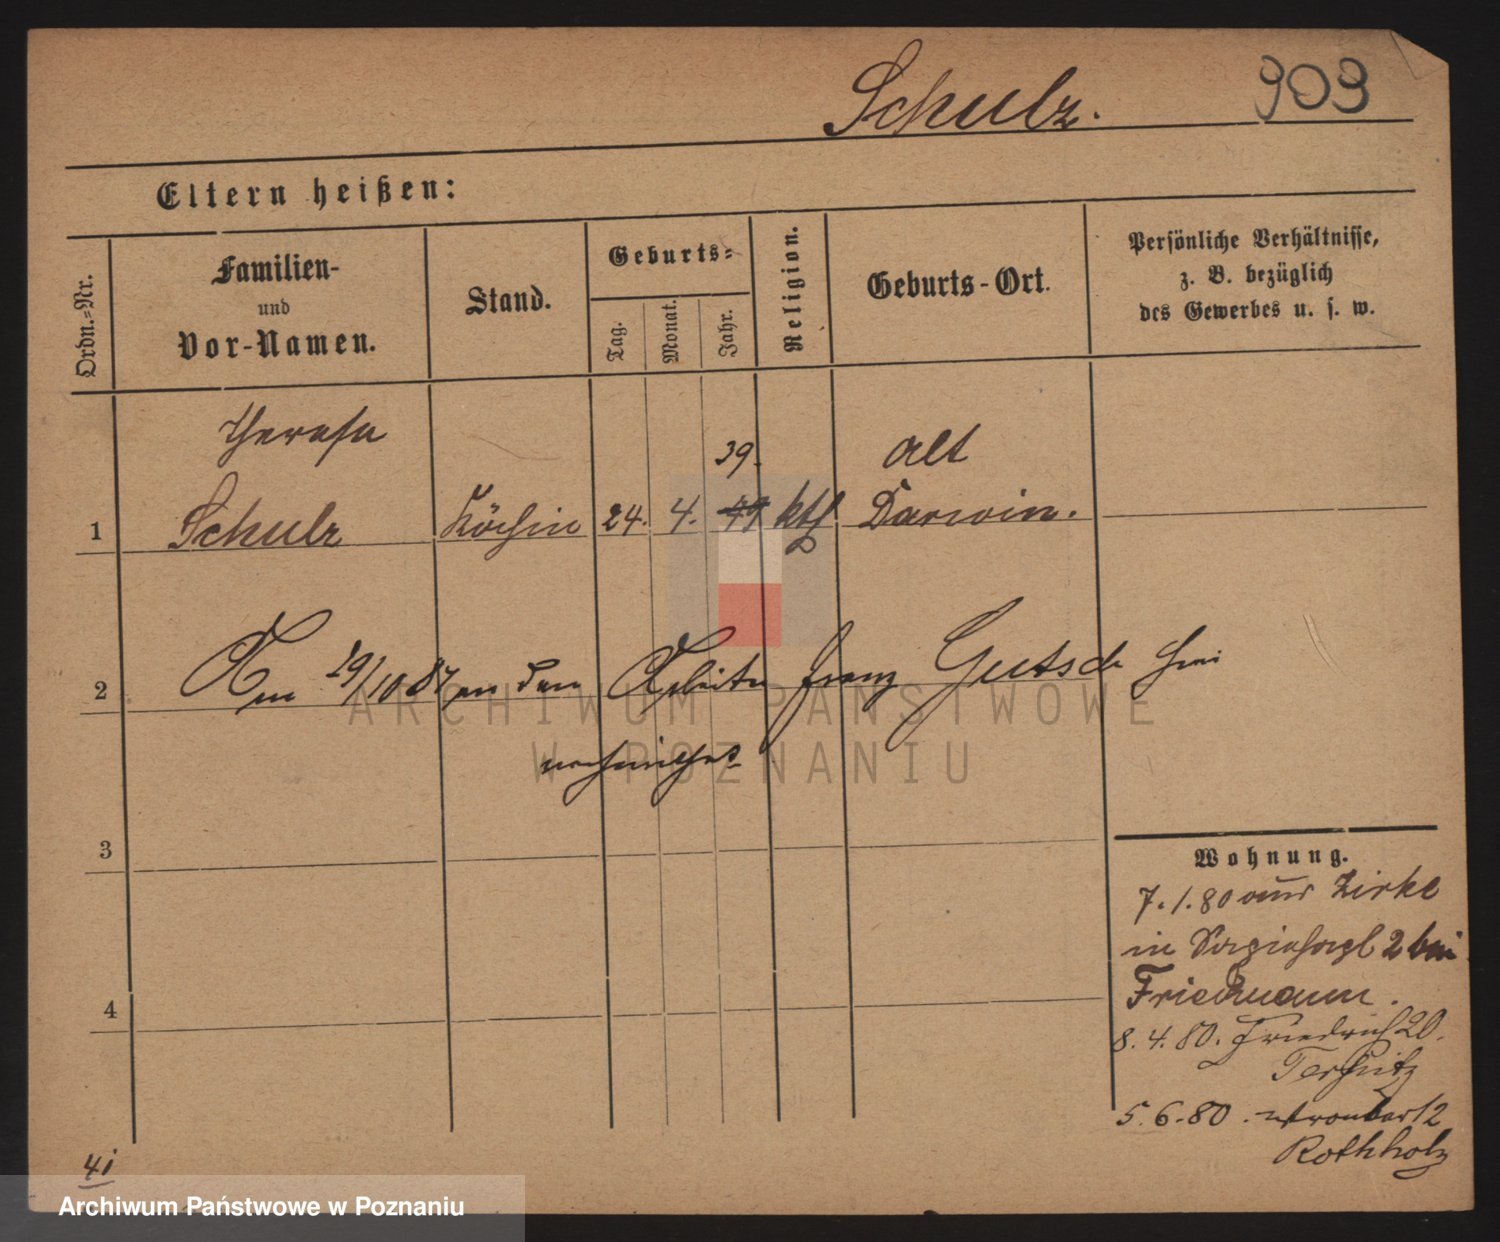 Schulz.
903
Eltern heißen:
Ordn.=Nr.
Familien-
und
Vor-Namen.
Stand.
Geburts=
Tag.
Monat.
Jahr.
Religion.
Geburts-Ort.
Persönliche Verhältnisse,
z. B. bezüglich
des Gewerbes u. s. w.
Theresa
39.
Alt
1 Schulz Köchin 24. 4. 49 kth Darwin.
2 Am 29/10 87 an den Arbeiter Franz Gutsch hier
verheirathet
3
4
Wohnung.
7.1.80 aus Zirke
in 2 bei
Friedmann.
8.4.80. Friedrich 20.
5.6.80. Wronker 12
Rothholz
41
ARCHIWUM PAŃSTWOWE
W POZNANIU
Archiwum Państwowe w Poznaniu